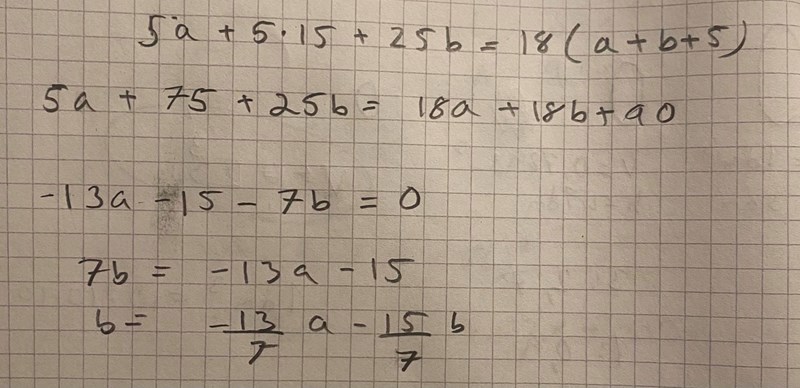 5a + 5·15 + 25b = 18(a+b+5)
5a + 75 + 25b = 18a + 18b + 90
-13a - 15 - 7b = 0
7b = -13a - 15
b = -13/7 a - 15/7 b